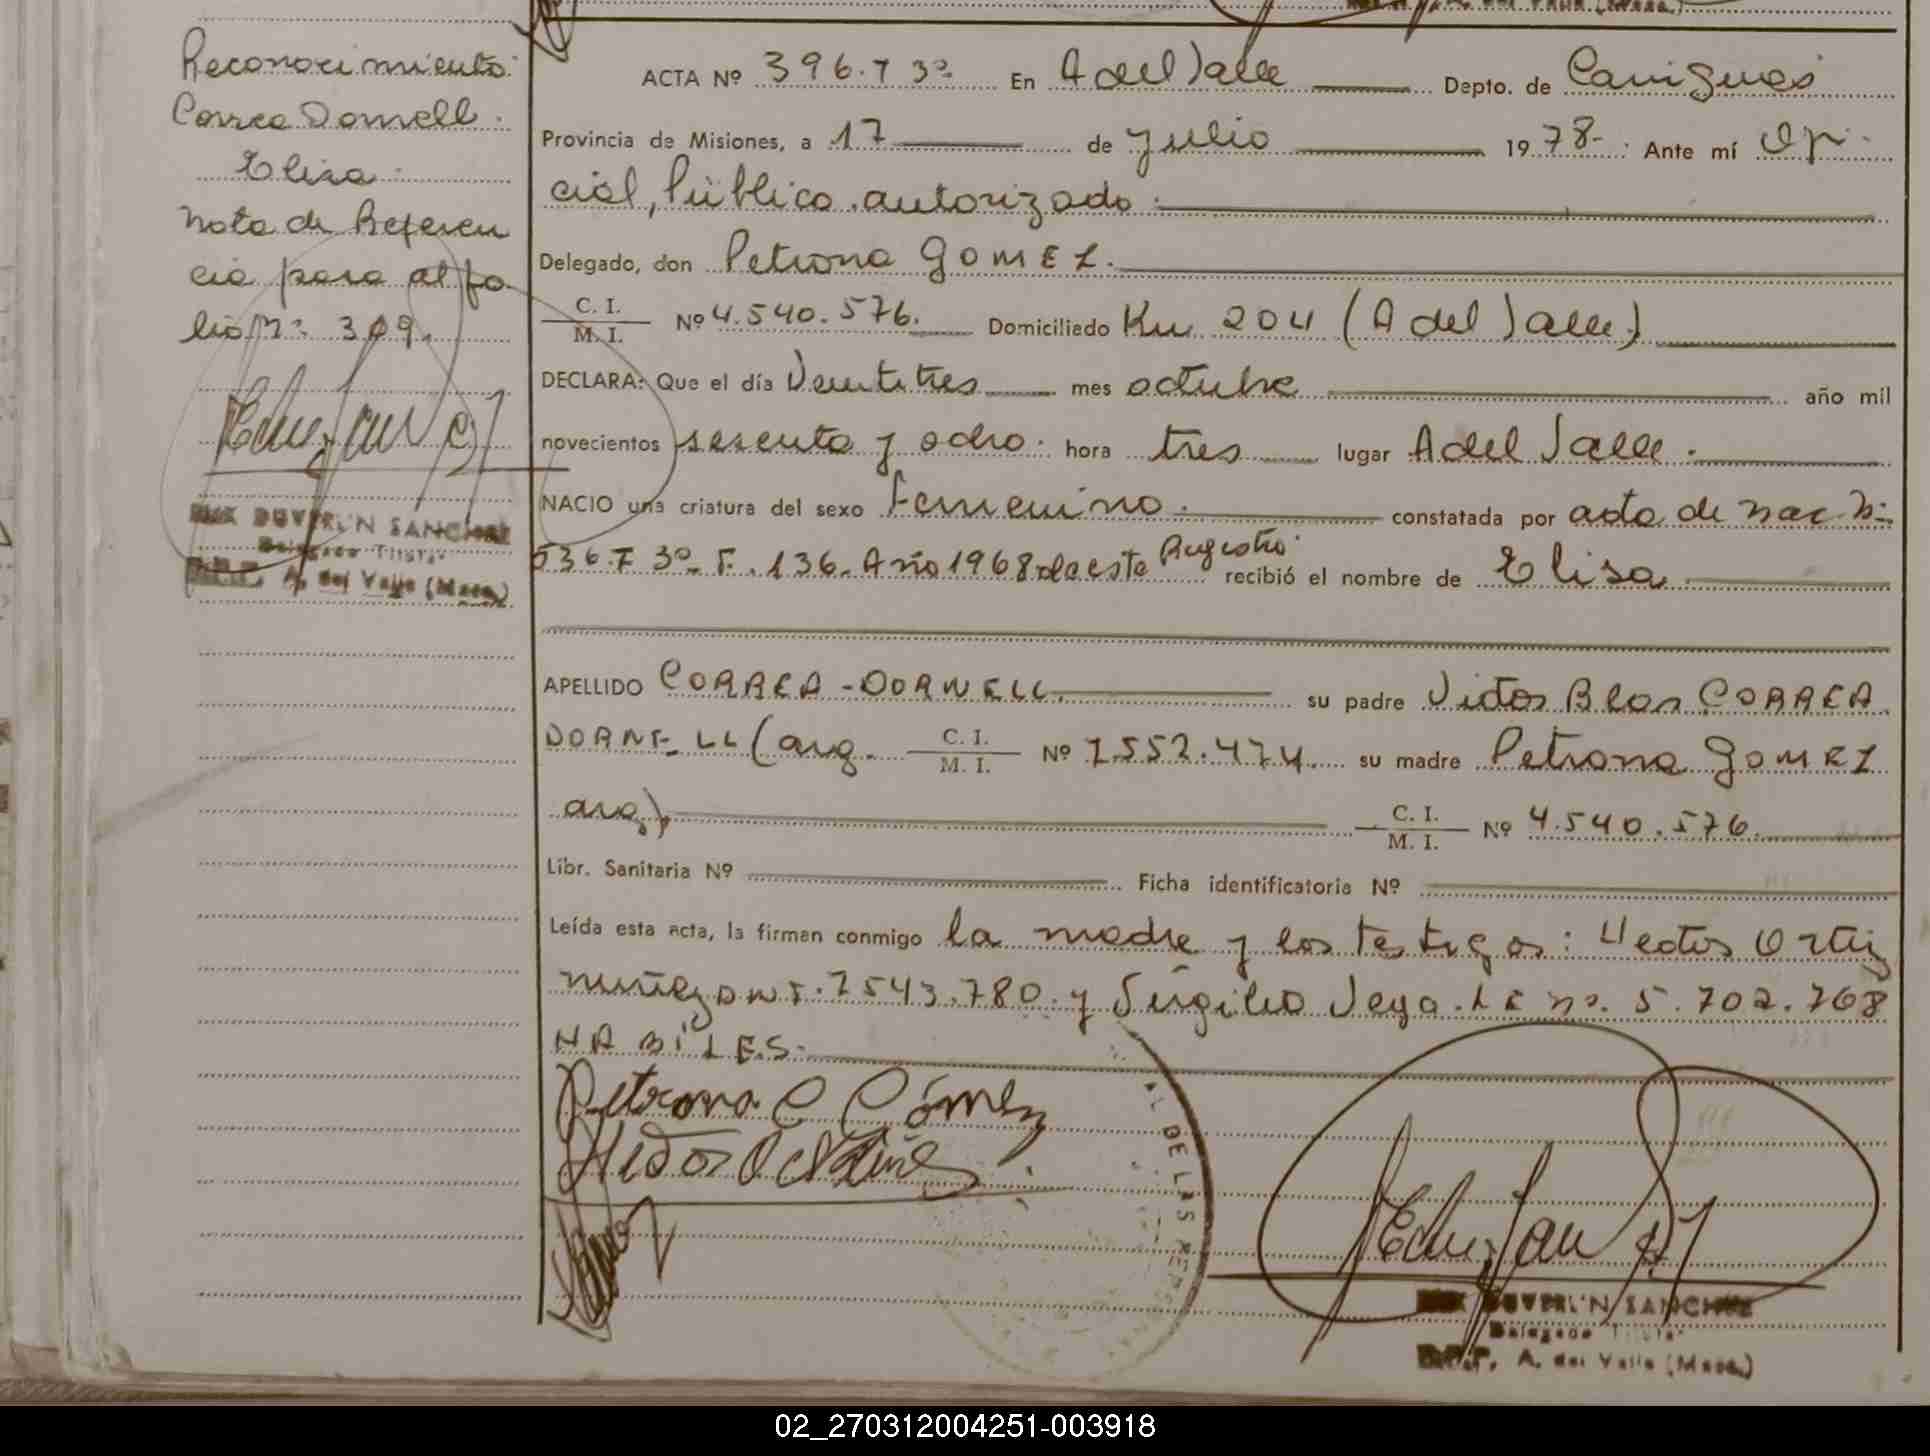 Reconocimiento
Correa Dornell
Elisa
Nota de Referen
cia para al fo
lio Nº 309.
DUVERL'N SANCHEZ
Delegado Titular
A. del Valle (Mnes.)
ACTA Nº 396. T 3º En A del Valle Depto. de Cainguas
Provincia de Misiones, a 17 de julio 1978. Ante mí Ofi
cial, Público autorizado.
Delegado, don Petrona GOMEZ.
C. I.
M. I. Nº 4.540.576. Domiciliado Km 204 (A del Valle)
DECLARA: Que el día Veintitres mes octubre año mil
novecientos sesenta y ocho. hora tres lugar A del Valle.
NACIO una criatura del sexo Femenino. constatada por acta de nac Nº
536. T 3º F. 136. Año 1968 de este Registro recibió el nombre de Elisa
APELLIDO CORREA-DORNELL su padre Victor Blas CORREA
DORNELL (arg. C. I. M. I. Nº 7.552.474. su madre Petrona GOMEZ
arg) C. I. M. I. Nº 4.540.576
Libr. Sanitaria Nº Ficha identificatoria Nº
Leída esta acta, la firman conmigo la madre y los testigos: Hector Ortiz
nuñez DNI. 7543.780. y Virgilio Vega. LE nº. 5.702.768
HABILES.
Petrona C Gómez
DE LAS PERSONAS
DUVERL'N SANCHEZ
Delegado Titular
A. del Valle (Mnes.)
02_270312004251-003918